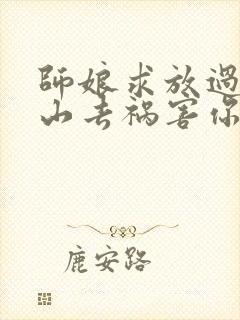 師娘求放過
山去禍害你
鹿安路